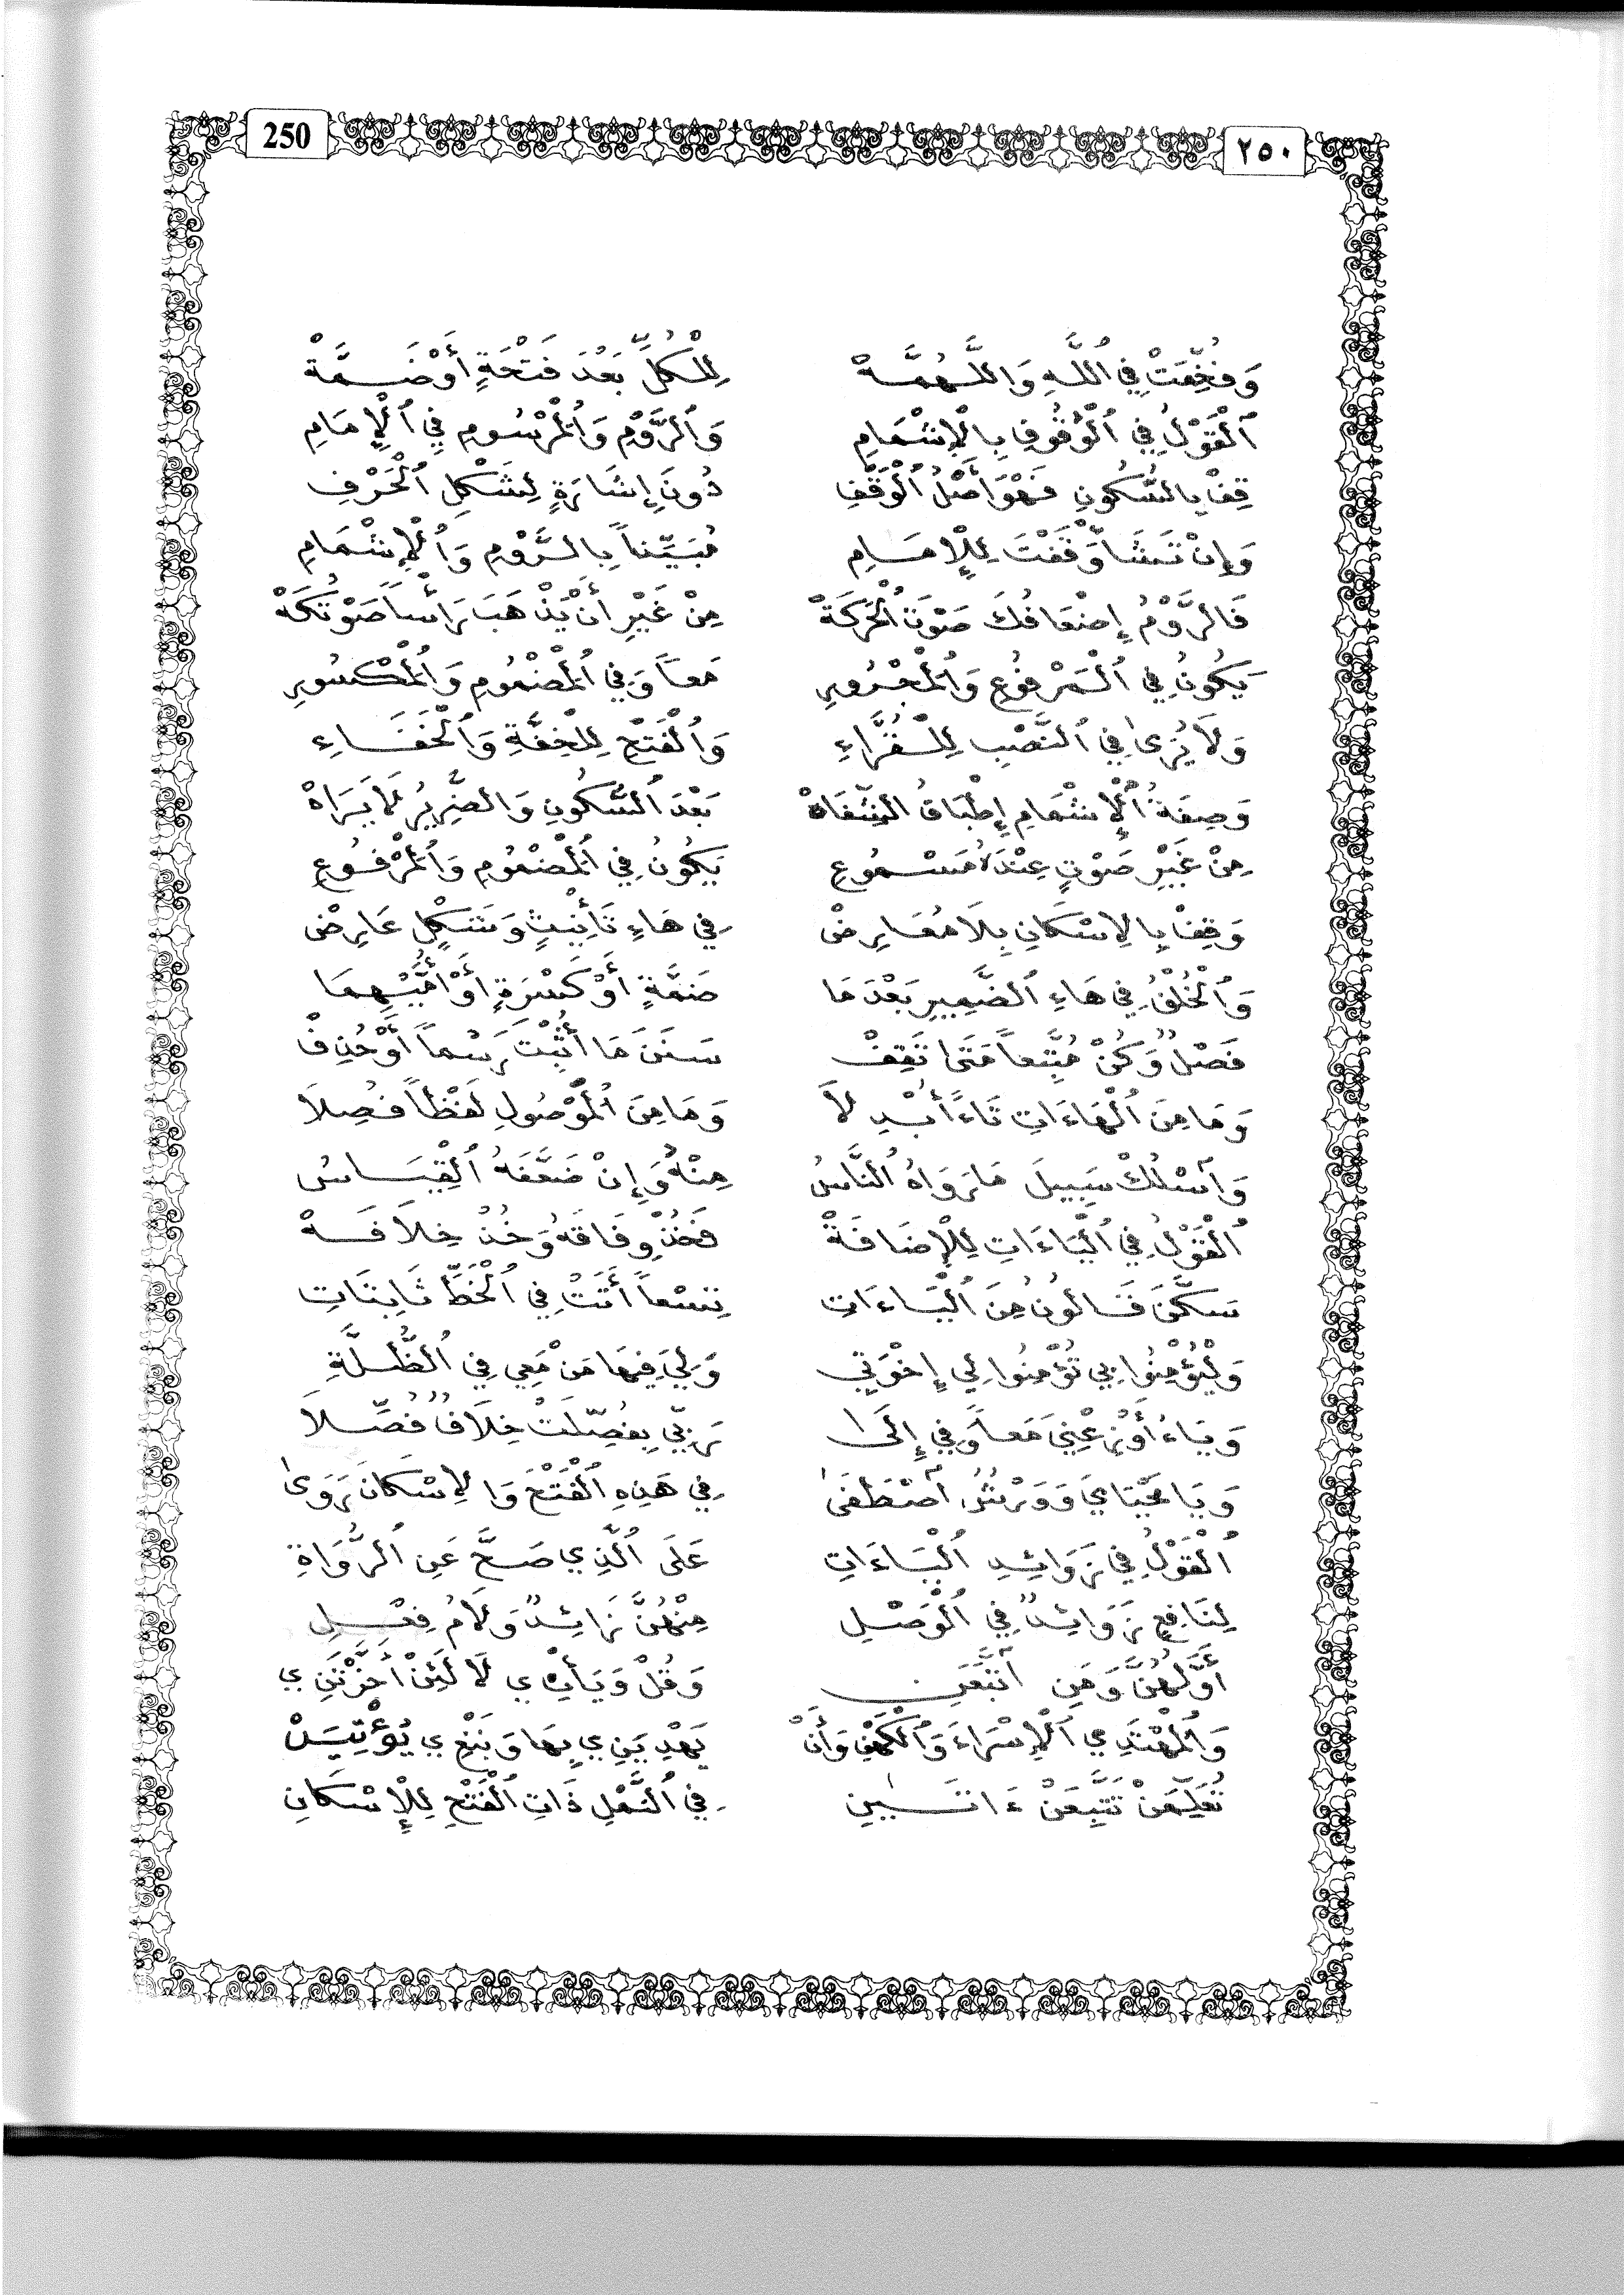 250 ٢٥٠
وَفُخِّمَتْ فِي اُللَّهِ وَاللَّهُمَّةْ لِلْكُلِّ بَعْدَ فَتْحَةٍ أَوْ ضَمَّةْ
اَلْقَوْلُ فِي اَلْوُقُوفِ بِالْإِشْمَامِ وَاَلرَّوْمِ وَاُلْمَرْسُومِ فِي اَلْإِمَامِ
قِفْ بِالسُّكُونِ فَهْوَ أَصْلُ اُلْوَقْفِ دُونَ إِشَارَةٍ لِشَكْلِ اُلْحَرْفِ
وَإِنْ تَشَأْ وَقَفْتَ لِلْإِمَامِ مُبَيِّناً بِالرَّوْمِ وَاُلْإِشْمَامِ
فَالرَّوْمُ إِضْعَافُكَ صَوْتَ اُلْحَرَكَةْ مِنْ غَيْرِ أَنْ يَذْهَبَ رَأْساً صَوْتُكَهْ
يَكُونُ فِي اُلْمَرْفُوعِ وَاُلْمَجْرُورِ مَعاً وَفِي اُلْمَضْمُومِ وَاُلْمَكْسُورِ
وَلَا يُرَىٰ فِي اُلنَّصْبِ لِلْقُرَّاءِ وَاُلْفَتْحِ لِلْخِفَّةِ وَاُلْخَفَاءِ
وَصِفَةُ اُلْإِشْمَامِ إِطْبَاقُ الشِّفَاهْ بَعْدَ اُلسُّكُونِ وَالضَّرِيرُ لَا يَرَاهْ
مِنْ غَيْرِ صَوْتٍ عِنْدَهُ مَسْمُوعِ يَكُونُ فِي اُلْمَضْمُومِ وَاُلْمَرْفُوعِ
وَقِفْ بِالِاسْكَانِ بِلَا مُعَارِضْ فِي هَاءِ تَأْنِيثٍ وَشَكْلٍ عَارِضْ
وَاُلْخُلْفُ فِي هَاءِ اُلضَّمِيرِ بَعْدَ مَا ضَمَّةٍ أَوْ كَسْرَةٍ أَوْ أُمَّيْهِمَا
فَصْلٌ وَكُنْ مُتَّبِعاً مَتَىٰ تَقِفْ سَنَنَ مَا أُثْبِتَ رَسْماً أَوْ حُذِفْ
وَمَا مِنَ اُلْهَاءَاتِ تَاءً أُبْدِلَا وَمَا مِنَ اُلْمَوْصُولِ لَفْظاً فُصِلَا
وَاَسْلُكْ سَبِيلَ مَا رَوَاهُ اُلنَّاسُ مِنْهُ وَإِنْ ضَعَّفَهُ اُلْقِيَاسُ
اُلْقَوْلُ فِي اُلْيَاءَاتِ لِلْإِضَافَةْ فَخُذْ وِفَاقَهُ وَخُذْ خِلَافَهْ
سَكَّنَ قَالُونُ مِنَ اُلْيَاءَاتِ تِسْعاً أَتَتْ فِي اُلْخَطِّ ثَابِتَاتِ
وَلْيُؤْمِنُوا بِي تُؤْمِنُوا لِي إِخْوَتِي وَلِيَ فِيهَا مَنْ مَعِي فِي اُلظُّلَّةِ
وَيَاءُ أَوْزِعْنِيَ مَعاً وَفِي إِلَىٰ رَبِّي بِفُصِّلَتْ خِلَافٌ فُصِّلَا
وَيَا مَحْيَايَ وَوَرْشٌ اَصْطَفَىٰ فِي هَذِهِ اُلْفَتْحَ وَالِاسْكَانَ رَوَىٰ
اُلْقَوْلُ فِي زَوَائِدِ اُلْيَاءَاتِ عَلَى اُلَّذِي صَحَّ عَنِ اُلرُّوَاةِ
لِنَافِعٍ زَوَائِدٌ فِي اُلْوَصْلِ مِنْهُنَّ زَائِدٌ وَلَامُ فِعْلِ
أَوَّلُهُنَّ وَمَنِ اَتَّبَعَنِ وَقُلْ وَيَأْتِ ي لَا لَئِنْ أَخَّرْتَنِ ي
وَاُلْمُهْتَدِي اُلْإِسْرَاءَ وَاُلْكَهْفِ وَأَنْ يَهْدِيَنِ ي بِهَا وَنَبْغِ ي يُؤْتِيَنْ
تُعَلِّمَنْ تَتَّبِعَنْ ءَاتَٰينِ فِي اُلنَّمْلِ ذَاتِ اُلْفَتْحِ لِلْإِسْكَانِ